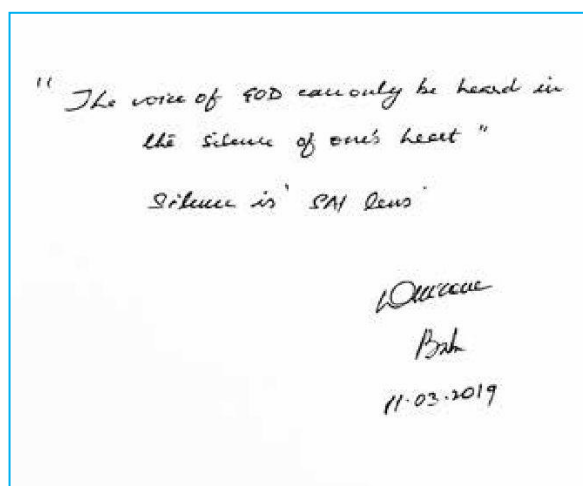 " The voice of GOD can only be heard in
the silence of one's heart "
Silence is ' SAI lens '
Baba
11.03.2019